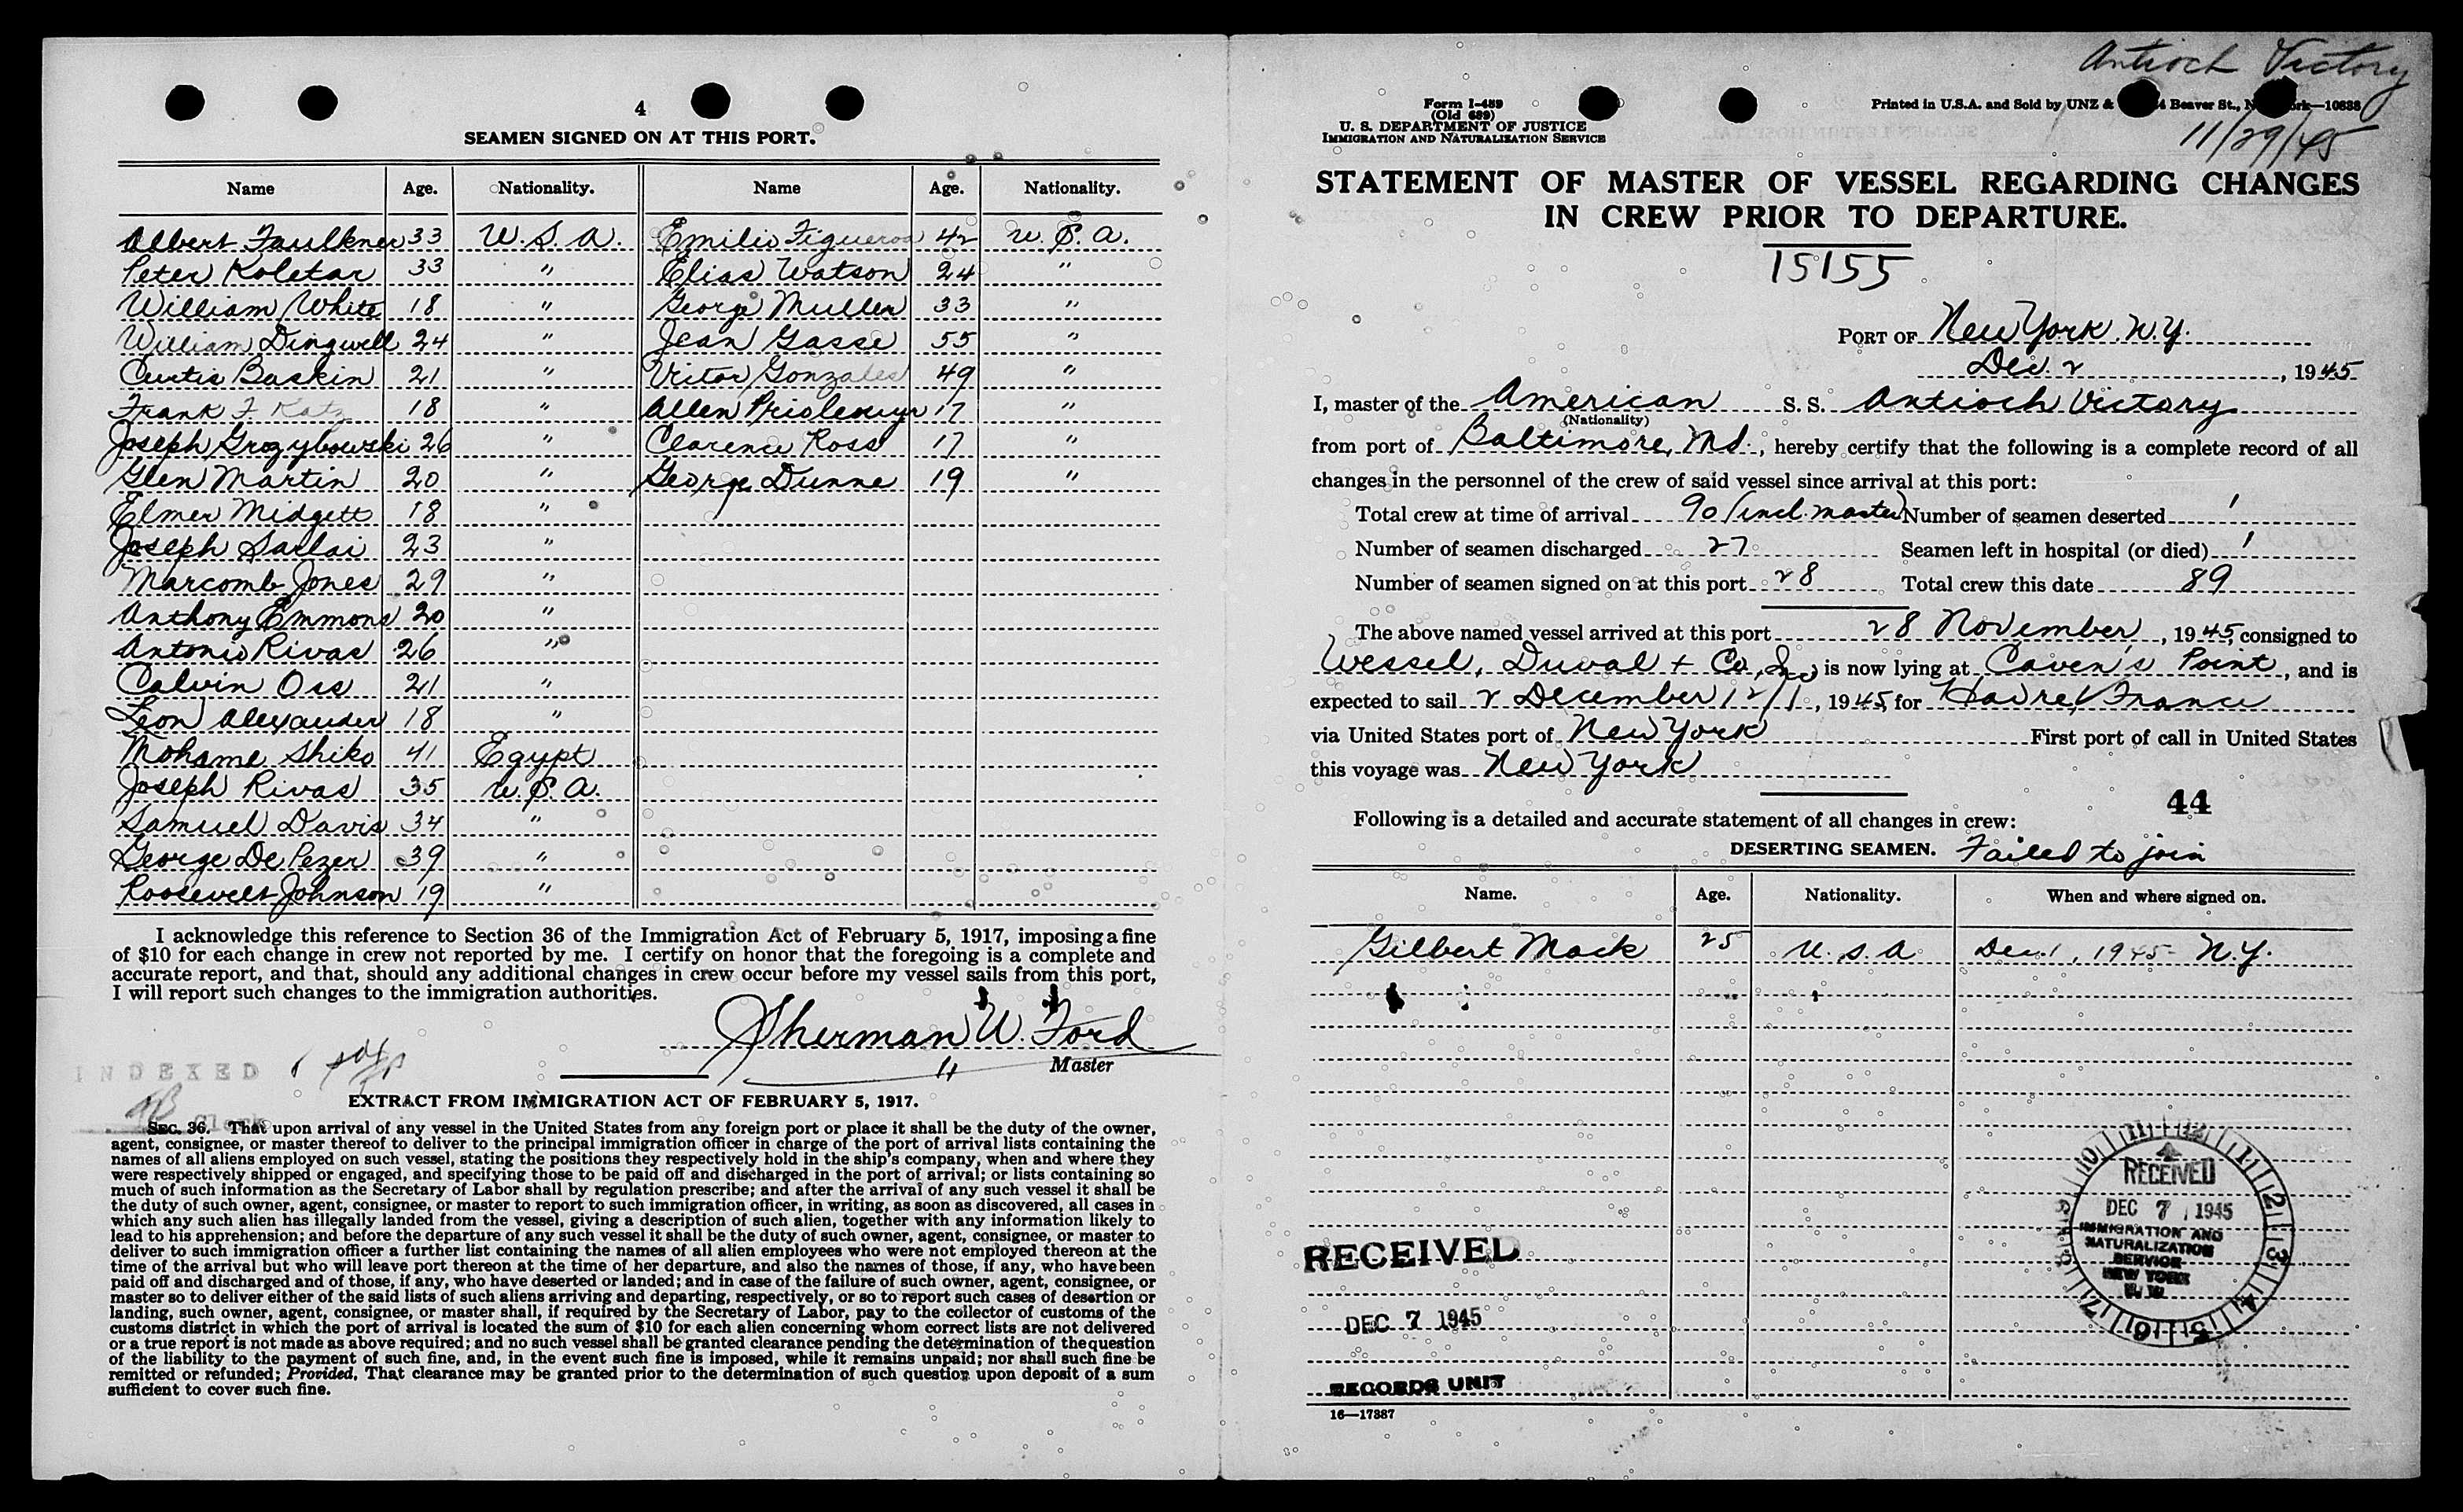 4
SEAMEN SIGNED ON AT THIS PORT.
Name Age. Nationality. Name Age. Nationality.
Albert Faulkner 33 U.S.A. Emilio Figueroa 42 U.S.A.
Peter Koletar 33 " Elias Watson 24 "
William White 18 " George Muller 33 "
William Dingwell 24 " Jean Gasse 55 "
Curtis Baskin 21 " Vitor Gonzales 49 "
Frank F. Katz 18 " Allen 17 "
Joseph Grozybowski 26 " Clarence Ross 17 "
Glen Martin 20 " George Dunne 19 "
Elmer Midgett 18 "
Joseph Sarlai 23 "
Marcomb Jones 29 "
Anthony Emmons 20 "
Antonio Rivas 26 "
Calvin Oss 21 "
Leon Alexander 18 "
Mohame Shiko 41 Egypt
Joseph Rivas 35 U.S.A.
Samuel Davis 34 "
George De Pezer 39 "
Roosevelt Johnson 19 "
I acknowledge this reference to Section 36 of the Immigration Act of February 5, 1917, imposing a fine
of $10 for each change in crew not reported by me. I certify on honor that the foregoing is a complete and
accurate report, and that, should any additional changes in crew occur before my vessel sails from this port,
I will report such changes to the immigration authorities.
Sherman W. Ford
Master
INDEXED
Clerk
EXTRACT FROM IMMIGRATION ACT OF FEBRUARY 5, 1917.
SEC. 36. That upon arrival of any vessel in the United States from any foreign port or place it shall be the duty of the owner,
agent, consignee, or master thereof to deliver to the principal immigration officer in charge of the port of arrival lists containing the
names of all aliens employed on such vessel, stating the positions they respectively hold in the ship's company, when and where they
were respectively shipped or engaged, and specifying those to be paid off and discharged in the port of arrival; or lists containing so
much of such information as the Secretary of Labor shall by regulation prescribe; and after the arrival of any such vessel it shall be
the duty of such owner, agent, consignee, or master to report to such immigration officer, in writing, as soon as discovered, all cases in
which any such alien has illegally landed from the vessel, giving a description of such alien, together with any information likely to
lead to his apprehension; and before the departure of any such vessel it shall be the duty of such owner, agent, consignee, or master to
deliver to such immigration officer a further list containing the names of all alien employees who were not employed thereon at the
time of the arrival but who will leave port thereon at the time of her departure, and also the names of those, if any, who have been
paid off and discharged and of those, if any, who have deserted or landed; and in case of the failure of such owner, agent, consignee, or
master so to deliver either of the said lists of such aliens arriving and departing, respectively, or so to report such cases of desertion or
landing, such owner, agent, consignee, or master shall, if required by the Secretary of Labor, pay to the collector of customs of the
customs district in which the port of arrival is located the sum of $10 for each alien concerning whom correct lists are not delivered
or a true report is not made as above required; and no such vessel shall be granted clearance pending the determination of the question
of the liability to the payment of such fine, and, in the event such fine is imposed, while it remains unpaid; nor shall such fine be
remitted or refunded; Provided, That clearance may be granted prior to the determination of such question upon deposit of a sum
sufficient to cover such fine.
Antioch Victory
11/29/45
Form I-489
(Old 689)
U. S. DEPARTMENT OF JUSTICE
IMMIGRATION AND NATURALIZATION SERVICE
Printed in U.S.A. and Sold by UNZ & 4 Beaver St., N rk—10838
STATEMENT OF MASTER OF VESSEL REGARDING CHANGES
IN CREW PRIOR TO DEPARTURE.
15155
PORT OF New York, N.Y.
Dec. 2, 1945
I, master of the American S. S. Antioch Victory
(Nationality)
from port of Baltimore, Md., hereby certify that the following is a complete record of all
changes in the personnel of the crew of said vessel since arrival at this port:
Total crew at time of arrival 90 (incl. master) Number of seamen deserted 1
Number of seamen discharged 27 Seamen left in hospital (or died) 1
Number of seamen signed on at this port 28 Total crew this date 89
The above named vessel arrived at this port 28 November, 1945, consigned to
Wessel, Duval + Co., Inc. is now lying at Caven's Point, and is
expected to sail 2 December 12/1, 1945, for Havre, France
via United States port of New York First port of call in United States
this voyage was New York
44
Following is a detailed and accurate statement of all changes in crew:
DESERTING SEAMEN. Failed to join
Name. Age. Nationality. When and where signed on.
Gilbert Mack 25 U.S.A Dec. 1, 1945 N.Y.
RECEIVED
DEC 7 1945
RECORDS UNIT
RECEIVED
DEC 7 1945
IMMIGRATION AND
NATURALIZATION
SERVICE
NEW YORK
N. Y.
16—17387